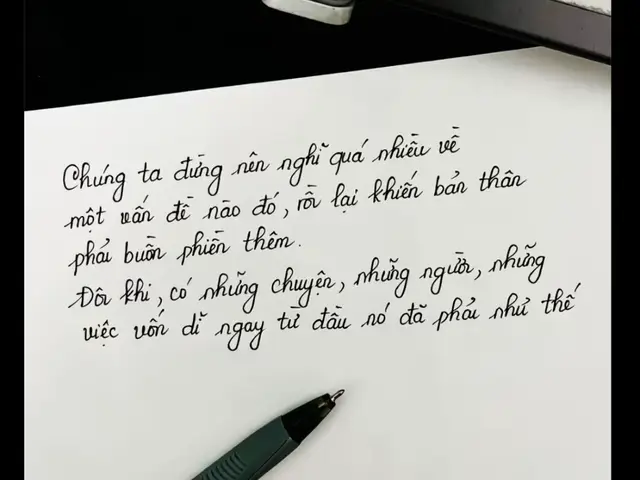 Chúng ta đừng nên nghĩ quá nhiều về
một vấn đề nào đó, rồi lại khiến bản thân
phải buồn phiền thêm.
Đôi khi, có những chuyện, những người, những
việc vốn dĩ ngay từ đầu nó đã phải như thế